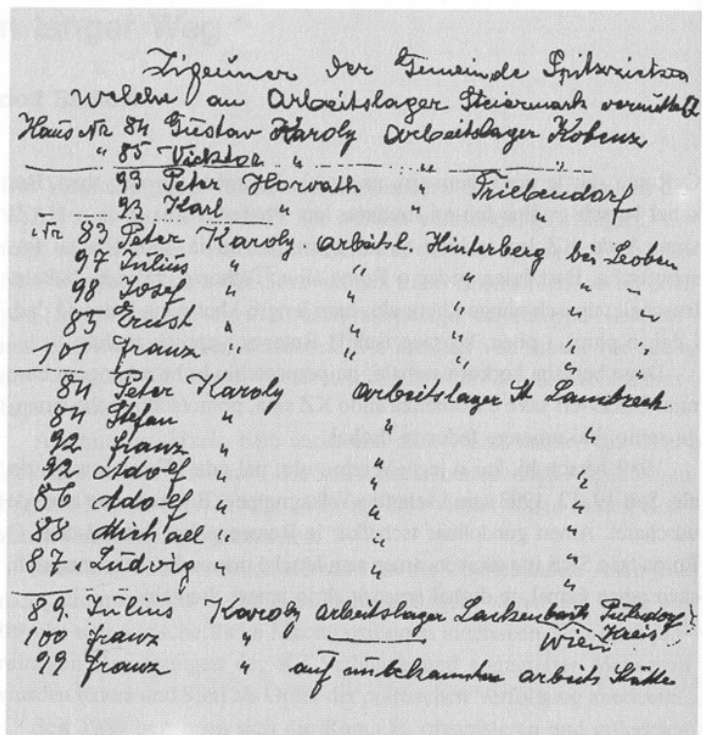 Zigeuner der Gemeinde Spitzzicken
Welche an Arbeitslager Steiermark vermittelt
Haus Nr 84 Gustav Karoly Arbeitslager Kobenz
" 85 Vicktor " " "
93 Peter Horvath " Triebendorf
93 Karl " " "
Nr. 83 Peter Karoly Arbeitsl. Hinterberg bei Leoben
97 Julius " " " " "
98 Josef " " " " "
85 Ernst " " " " "
101 franz " " " " "
84 Peter Karoly Arbeitslager St. Lambrech
84 Stefan " " "
92 franz " " "
92 Adolf " " "
86 Adolf " " "
88 Michael " " "
87 Ludvig " " "
89 Julius Karoly Arbeitslager Lackenbach
100 franz " Wien Kreis
99 franz " auf unbekannten arbeits Stätte